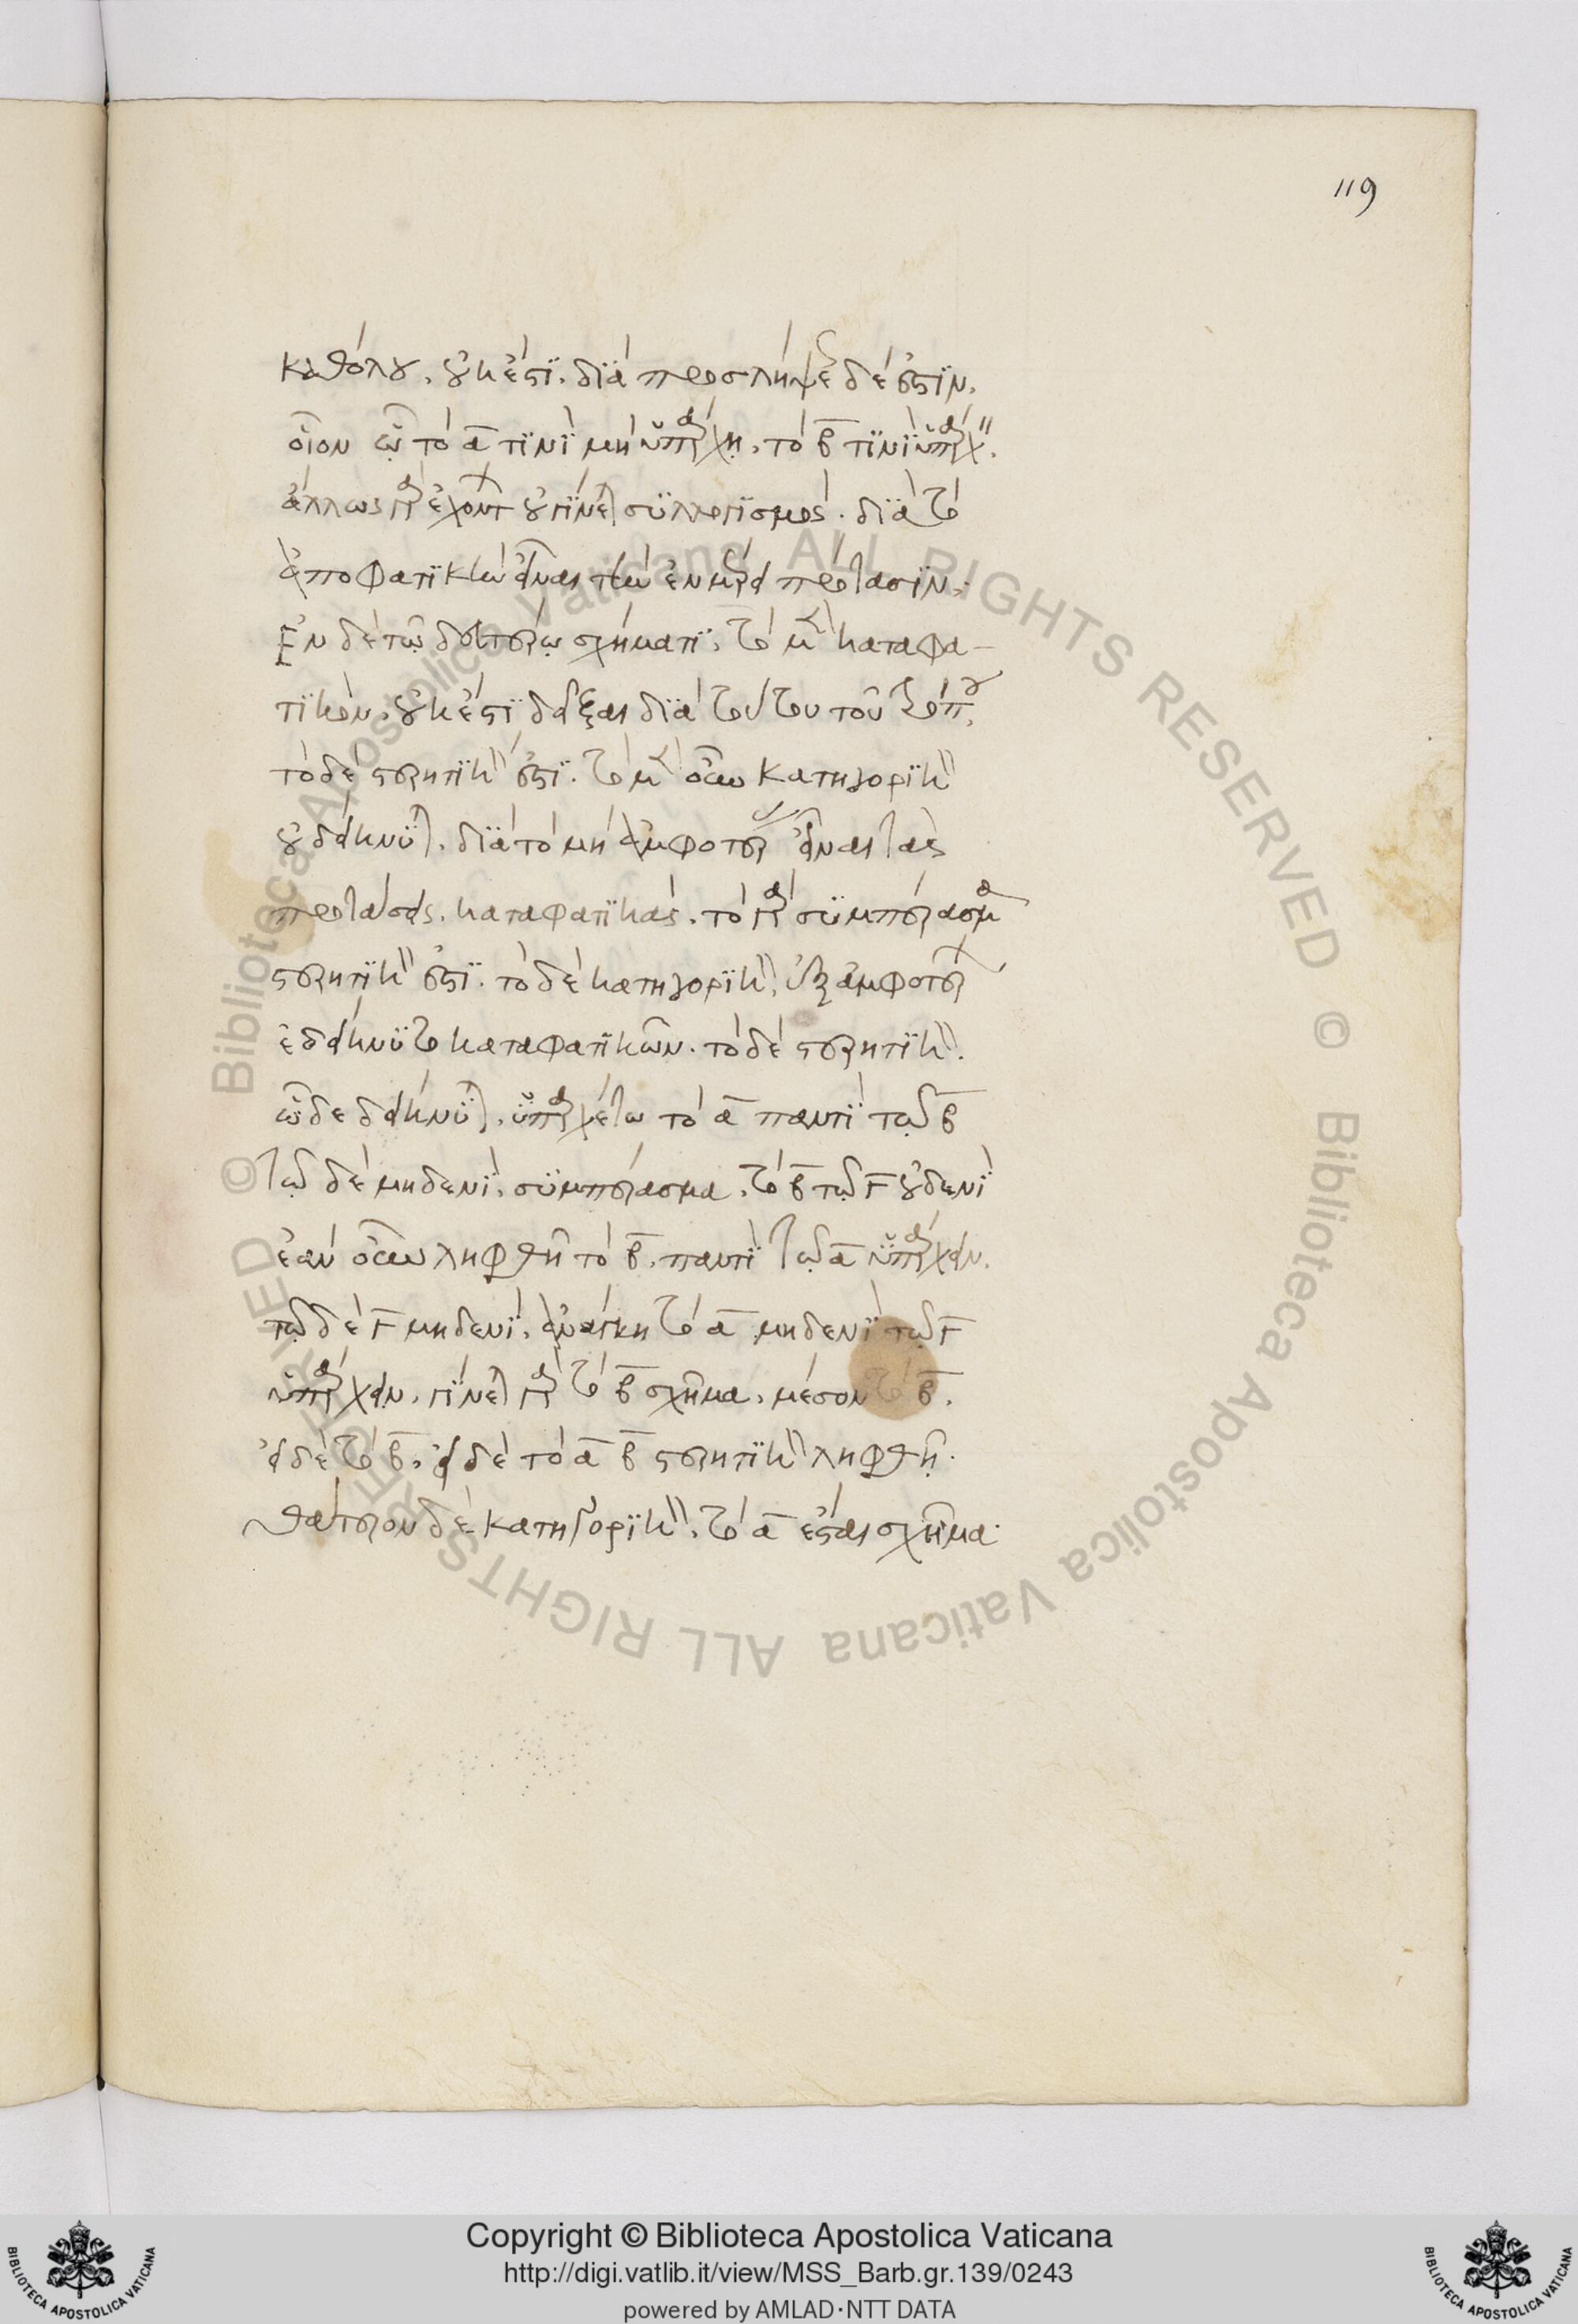 119
καθόλου. οὐκ ἔστι. διὰ προσλήψεως δέ ἐστιν.
οἷον ᾧ τὸ α τινὶ μὴ ὑπάρχη. τὸ β τινὶ ὑπάρχειν.
ἄλλως γὰρ ἐχόντων οὐ γίνεται συλλογισμός. διὰ τὸ
ἀποφατικὴν εἶναι τὴν ἐν μέρει πρότασιν.
Ἐν δὲ τῷ δευτέρῳ σχήματι. τὸ μὲν καταφα-
τικὸν. οὐκ ἔστι δεῖξαι διὰ τούτου τοῦ τρόπου.
τὸ δὲ στερητικὸν ἐστί. τὸ μὲν οὖν κατηγορικὸν
οὐ δείκνυται. διὰ τὸ μὴ ἀμφοτέρας εἶναι τὰς
προτάσεις. καταφατικάς. τὸ γὰρ συμπέρασμα
στερητικὸν ἐστί. τὸ δὲ κατηγορικὸν, ἐξ ἀμφοτέρων
ἐδείκνυτο καταφατικῶν. τὸ δὲ στερητικὸν.
ὧδε δείκνυται. ὑπαρχέτω τὸ α παντὶ τῷ β
τῷ δὲ μηδενί. συμπέρασμα. τὸ β τῷ γ οὐδενὶ
ἐὰν οὖν ληφθῆ τὸ β. παντὶ τῷ α ὑπάρχειν.
τῷ δὲ γ μηδενί. ἀνάγκη τὸ α μηδενὶ τῷ γ
ὑπάρχειν. γίνεται γὰρ τὸ β σχῆμα. μέσον τὸ β.
εἰ δὲ τὸ β. εἰ δὲ τὸ α β στερητικὸν ληφθῆ.
θάτερον δὲ κατηγορικὸν. τὸ α ἔσται σχῆμα.
ALL RIGHTS RESERVED © Biblioteca Apostolica Vaticana
Copyright © Biblioteca Apostolica Vaticana
http://digi.vatlib.it/view/MSS_Barb.gr.139/0243
powered by AMLAD·NTT DATA
BIBLIOTECA APOSTOLICA VATICANA
BIBLIOTECA APOSTOLICA VATICANA